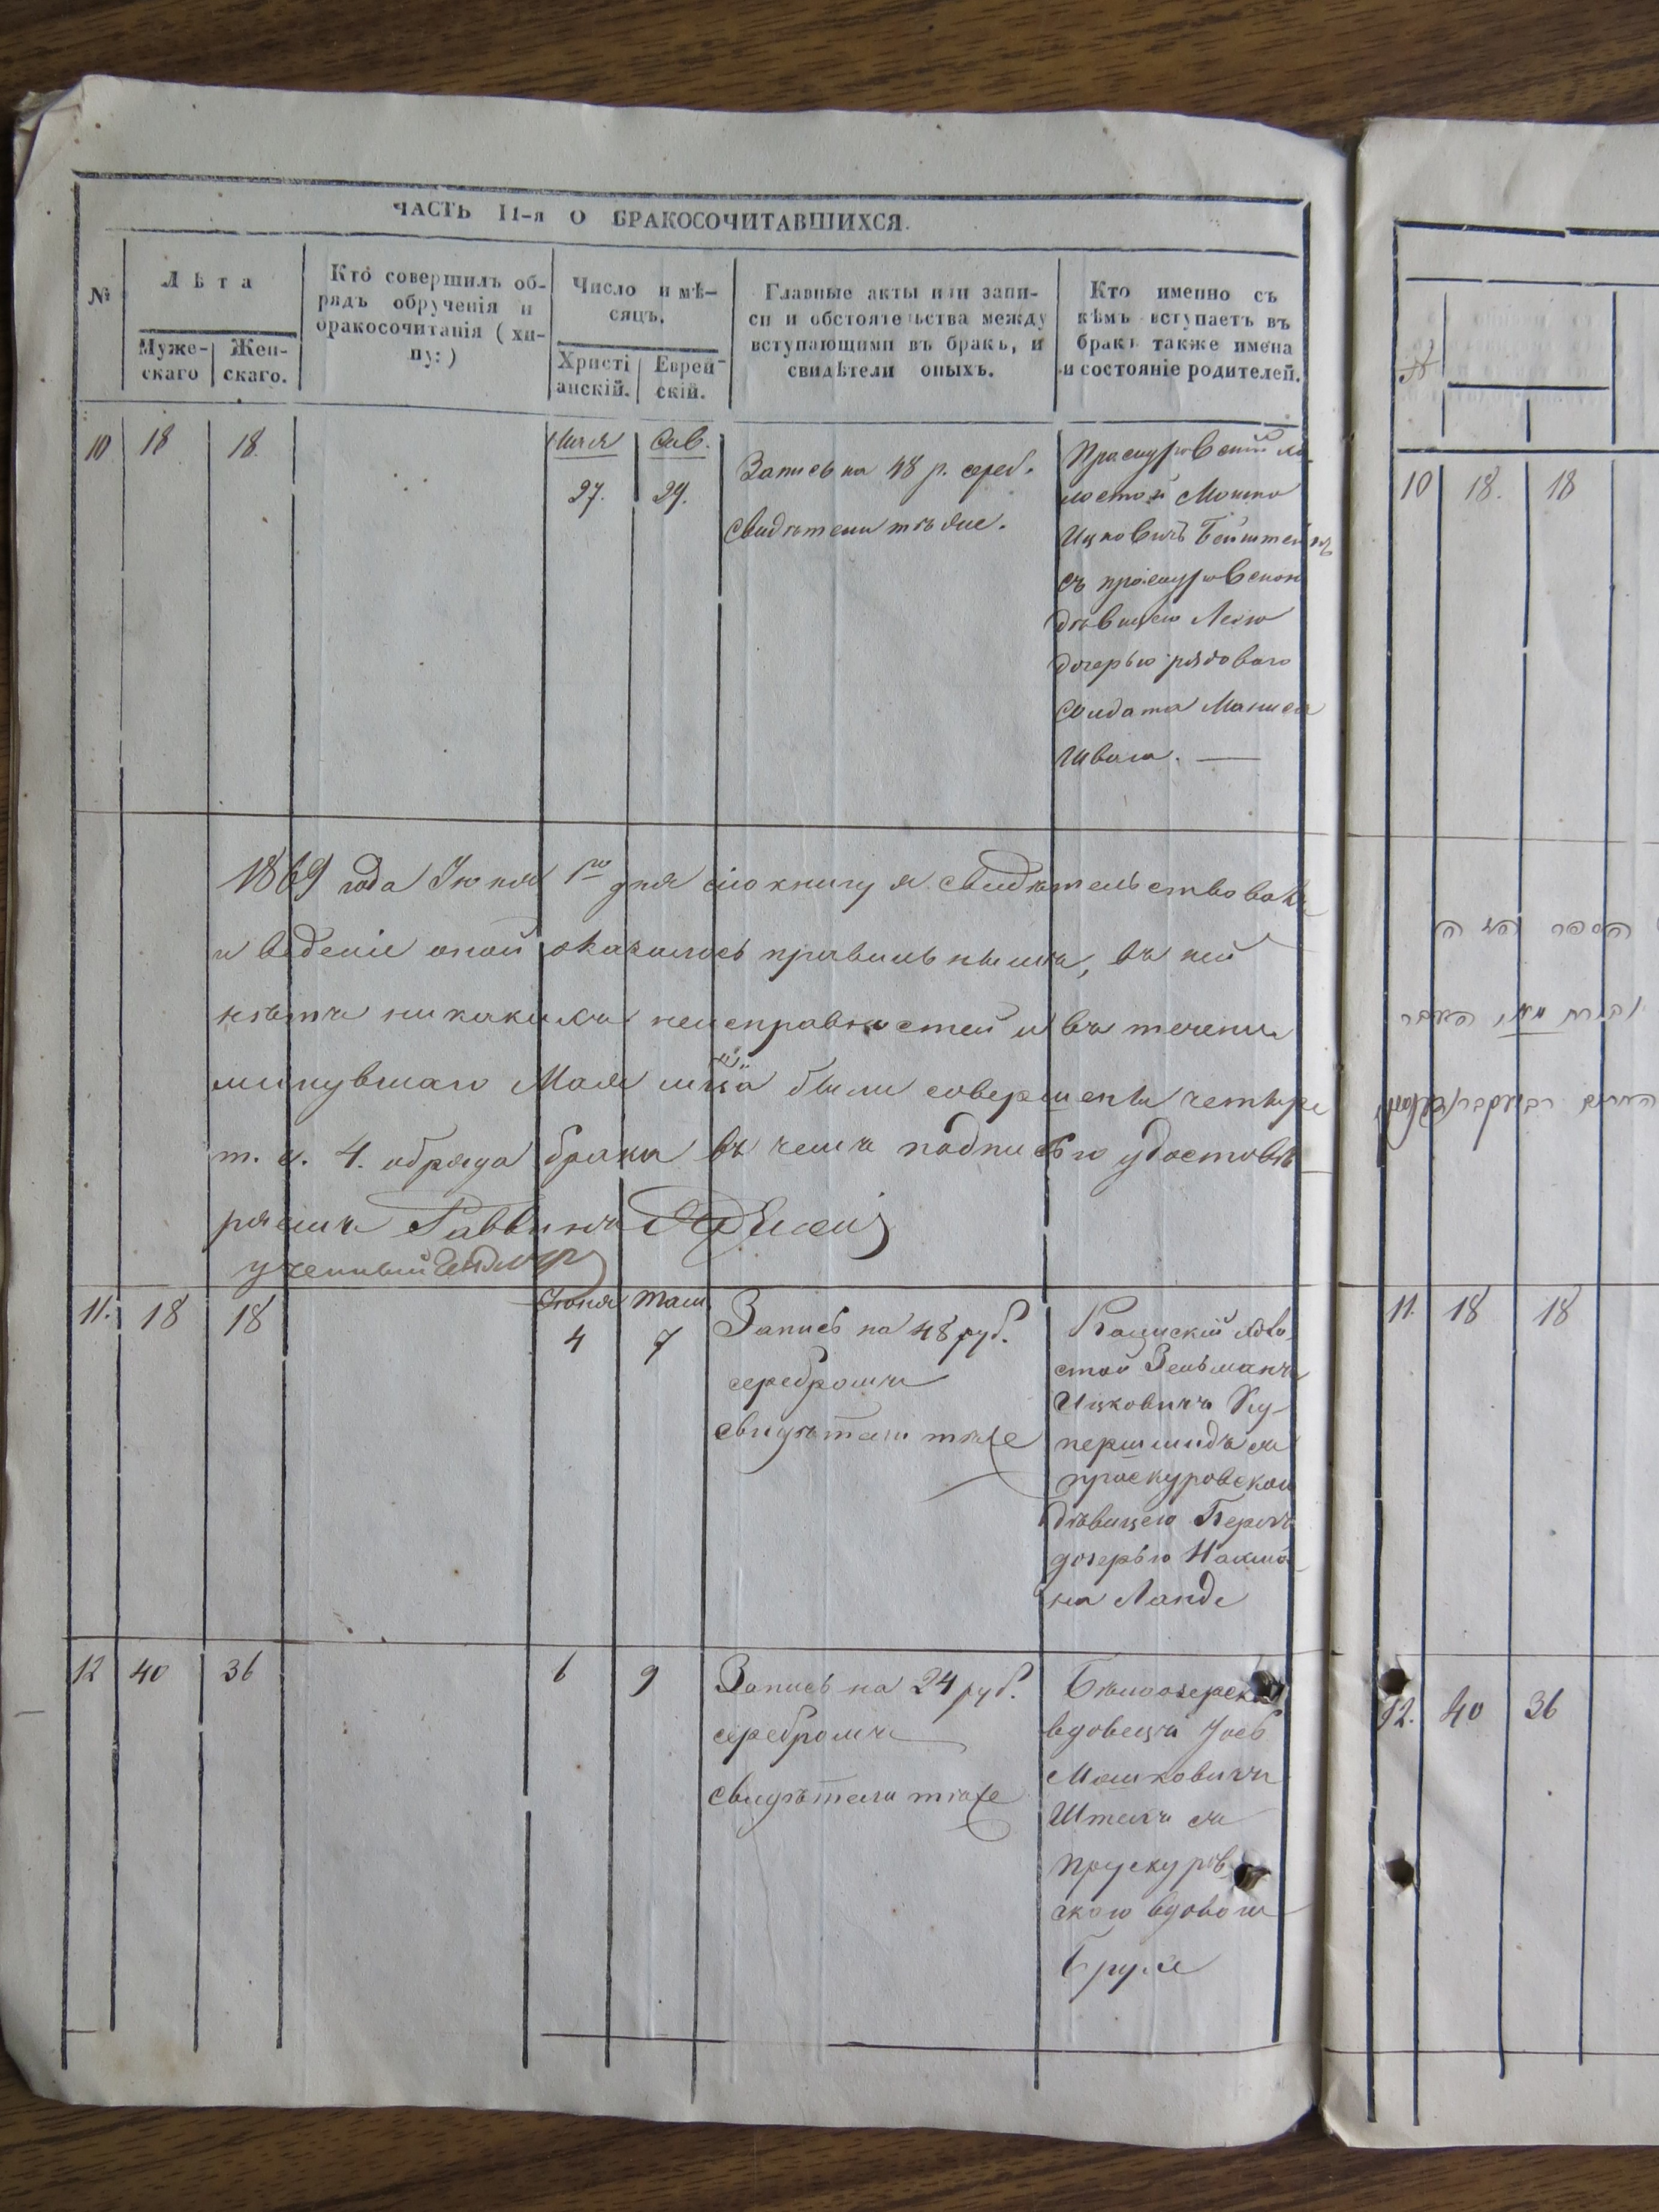 ЧАСТЬ II-я О БРАКОСОЧИТАВШИХСЯ.
№
Лѣта
Муже-
скаго
Жен-
скаго.
Кто совершилъ об-
рядъ обрученія и
бракосочитанія (хи-
пу:)
Число и мѣ-
сяцъ.
Христі
анскій.
Еврей-
скій.
Главные акты или запи-
си и обстоятельства между
вступающими въ бракъ, и
свидѣтели оныхъ.
Кто именно съ
кѣмъ вступаетъ въ
бракъ также имена
и состояніе родителей.
10
18
18
Мая
27.
Сив.
29.
Запись на 48 р. сереб.
Свидѣтели тѣ же.
Проскуровскій хо-
лостой Мошко
Ицковичъ
съ проскуровскою
дѣвицею Леею
дочерью рядоваго
солдата
1869 года Іюня 1го дня сію книгу я свидѣтельствовалъ
и веденіе оной оказалось правильнымъ, въ ней
нѣтъ никакихъ неисправностей и въ течени
минувшаго Мая мца были совершены четыре
т. е. 4. обряда брака въ чемъ подписью удостовѣ
ряемъ Раввинъ
ученный
11.
18
18
Іюня
4
Там
7
Запись на 48 руб.
серебромъ
свидѣтели тѣже
холо-
стой Зельманъ
Ицковичъ Ку-
першмидъ съ
проскуровскою
дѣвицею
дочерью Нахма
на Ланде
12
40
36
6
9
Запись на 24 руб.
серебромъ
свидѣтели тѣже
Бѣлозерск
вдовецъ Іосъ
Мошковичъ
съ
Проскуров
ского вдовою
10
18.
18
11.
18
18
12.
40
36